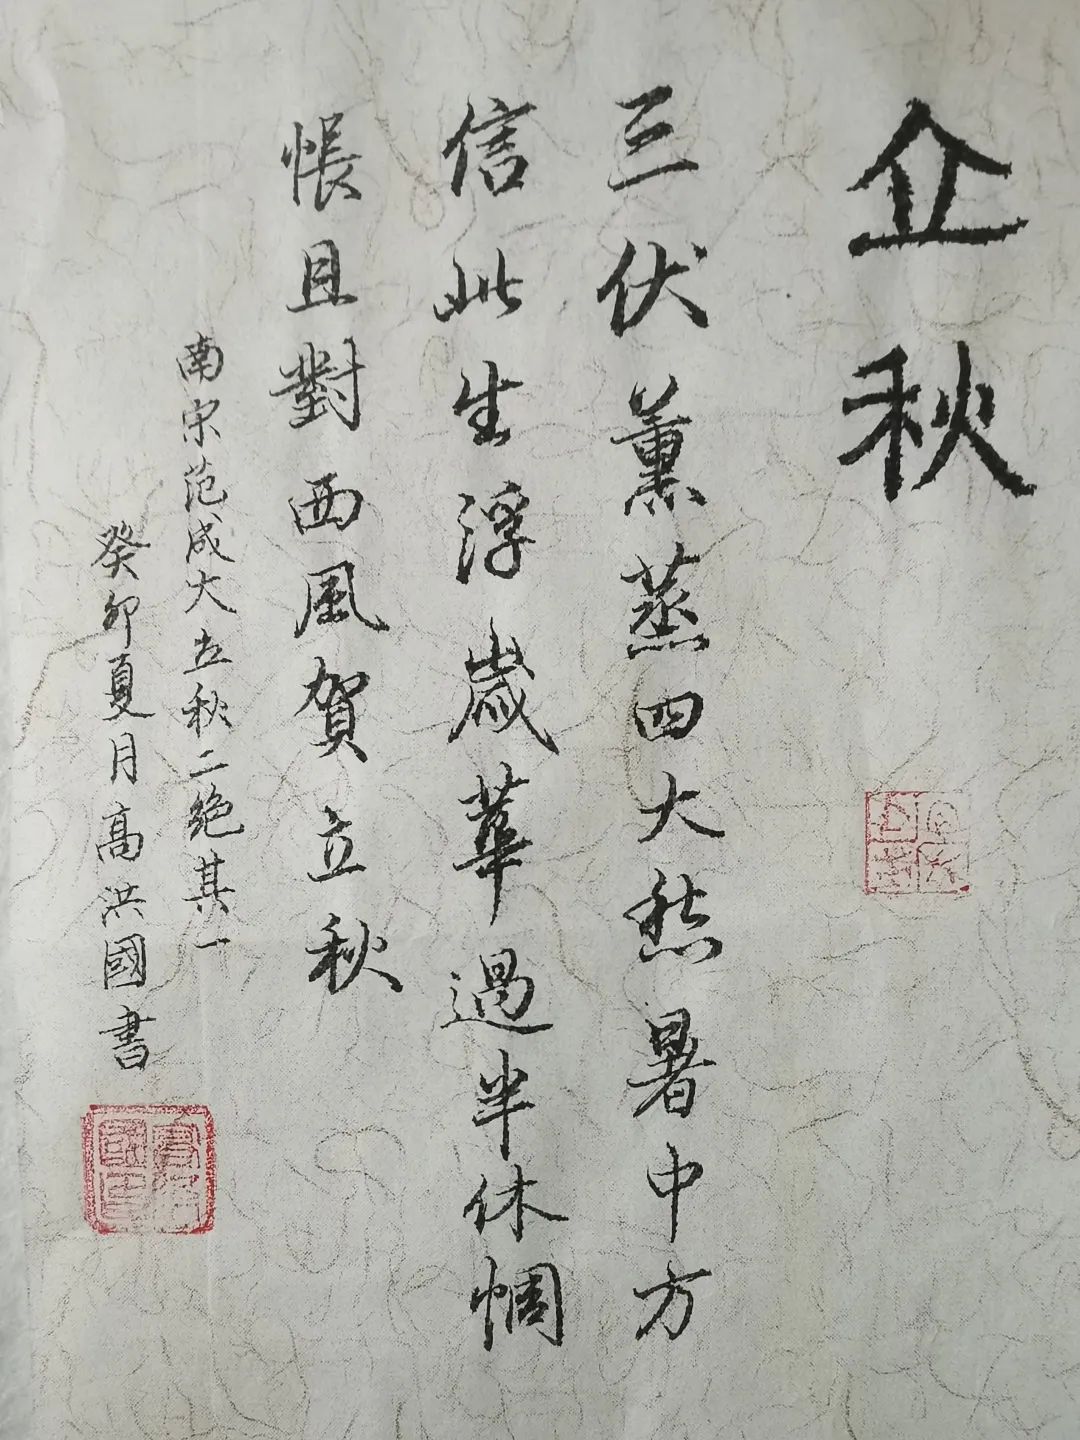 企秋
三伏薰蒸四大愁暑中方
信此生浮歲華過半休惆
悵且對西風賀立秋
南宋范成大立秋二绝其一
癸卯夏月高洪國書